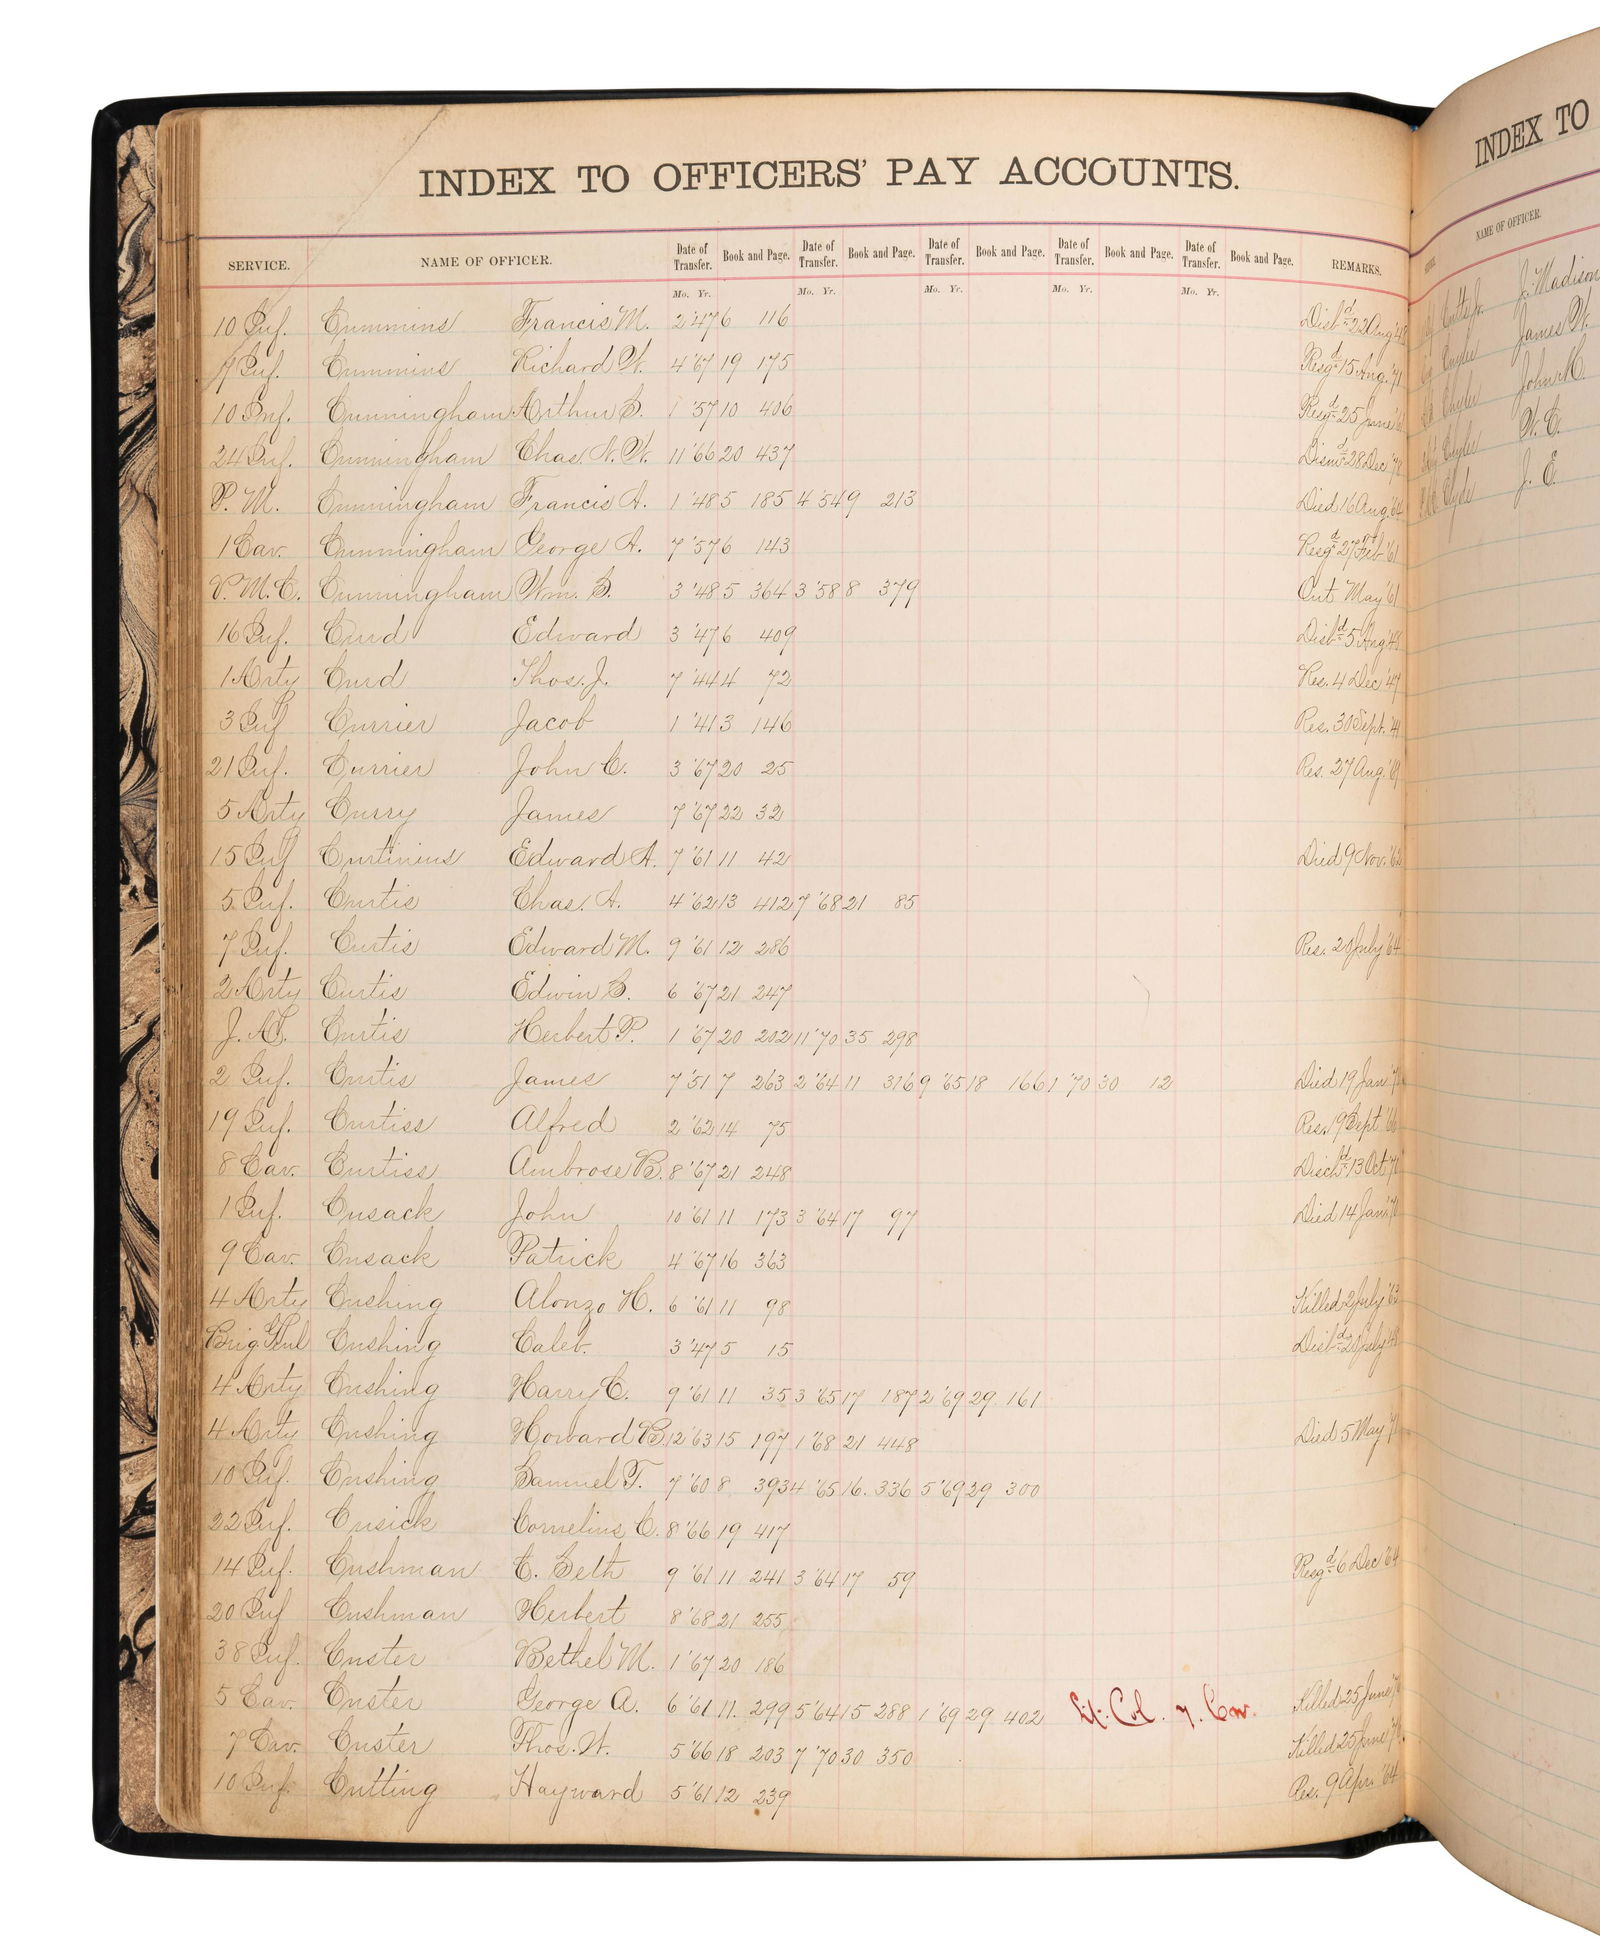 INDEX TO OFFICERS' PAY ACCOUNTS.
SERVICE. NAME OF OFFICER. Date of Transfer. Book and Page. Date of Transfer. Book and Page. Date of Transfer. Book and Page. Date of Transfer. Book and Page. Date of Transfer. Book and Page. REMARKS.
Mo. Yr. Mo. Yr. Mo. Yr. Mo. Yr. Mo. Yr.
10 Inf. Cummins Francis M. 2 '47 6 116 Disbd 22 Aug '48
7 Inf. Cummins Richard W. 4 '67 19 175 Resgd 15 Aug. '71
10 Inf. Cunningham Arthur S. 1 '57 10 406 Resgd 25 June '61
24 Inf. Cunningham Chas. N. W. 11 '66 20 437 Dismd 28 Dec
P. M. Cunningham Francis A. 1 '48 5 185 4 '54 9 213 Died 16 Aug. '64
1 Cav. Cunningham George A. 7 '57 6 143 Resgd 27 Feb '61
P. M. C. Cunningham Wm. S. 3 '48 5 364 3 '58 8 379 Out May '61
16 Inf. Curd Edward 3 '47 6 409 Disbd 5 Aug '48
1 Arty Curd Thos. J. 7 '44 4 72 Res. 4 Dec '47
3 Inf Currier Jacob 1 '41 3 146 Res. 30 Sept. '41
21 Inf. Currier John C. 3 '67 20 25 Res. 27 Aug.
5 Arty Curry James 7 '67 22 32
15 Inf Curtinius Edward A. 7 '61 11 42 Died 9 Nov. '62
5 Inf. Curtis Chas. A. 4 '62 13 412 7 '68 21 85
7 Inf. Curtis Edward M. 9 '61 12 286 Res. 20 July '64
2 Arty Curtis Edwin S. 6 '67 21 247
J. A. Curtis Herbert P. 1 '67 20 202 11 '70 35 298
2 Inf. Curtis James 7 '51 7 263 2 '64 11 316 9 '65 18 166 1 '70 30 12 Died 19 Jan
19 Inf. Curtiss Alfred 2 '62 14 75 Res. 19 Sept. '66
8 Cav. Curtiss Ambrose B. 8 '67 21 248 Dischd 13 Oct
1 Inf. Cusack John 10 '61 11 173 3 '64 17 97 Died 14 Jan
9 Cav. Cusack Patrick 4 '67 16 363
4 Arty Cushing Alonzo H. 6 '61 11 98 Killed 2 July '63
Brig. Genl Cushing Caleb. 3 '47 5 15 Disbd 20 July '48
4 Arty Cushing Harry C. 9 '61 11 35 3 '65 17 187 2 '69 29 161
4 Arty Cushing Howard B. 12 '63 15 197 1 '68 21 448 Died 5 May
10 Inf. Cushing Samuel T. 7 '60 8 393 4 '65 16. 336 5 '69 29 300
22 Inf. Cusick Cornelius C. 8 '66 19 417
14 Inf. Cushman C. Seth 9 '61 11 241 3 '64 17 59 Resgd 6 Dec '64
20 Inf Cushman Herbert 8 '68 21 255
38 Inf. Custer Bethel M. 1 '67 20 186
5 Cav. Custer George A. 6 '61 11. 299 5 '64 15 288 1 '69 29 402 Lt. Col. 7. Cav. Killed 25 June
7 Cav. Custer Thos. W. 5 '66 18 203 7 '70 30 350 Killed 25 June
10 Inf. Cutting Hayward 5 '61 12 239 Res. 9 Apr. '64
INDEX TO
NAME OF OFFICER.
Cutts Jr. J. Madison
Cuyler James W.
Cuyler John M.
Cuyler W. C.
Clyde J. E.